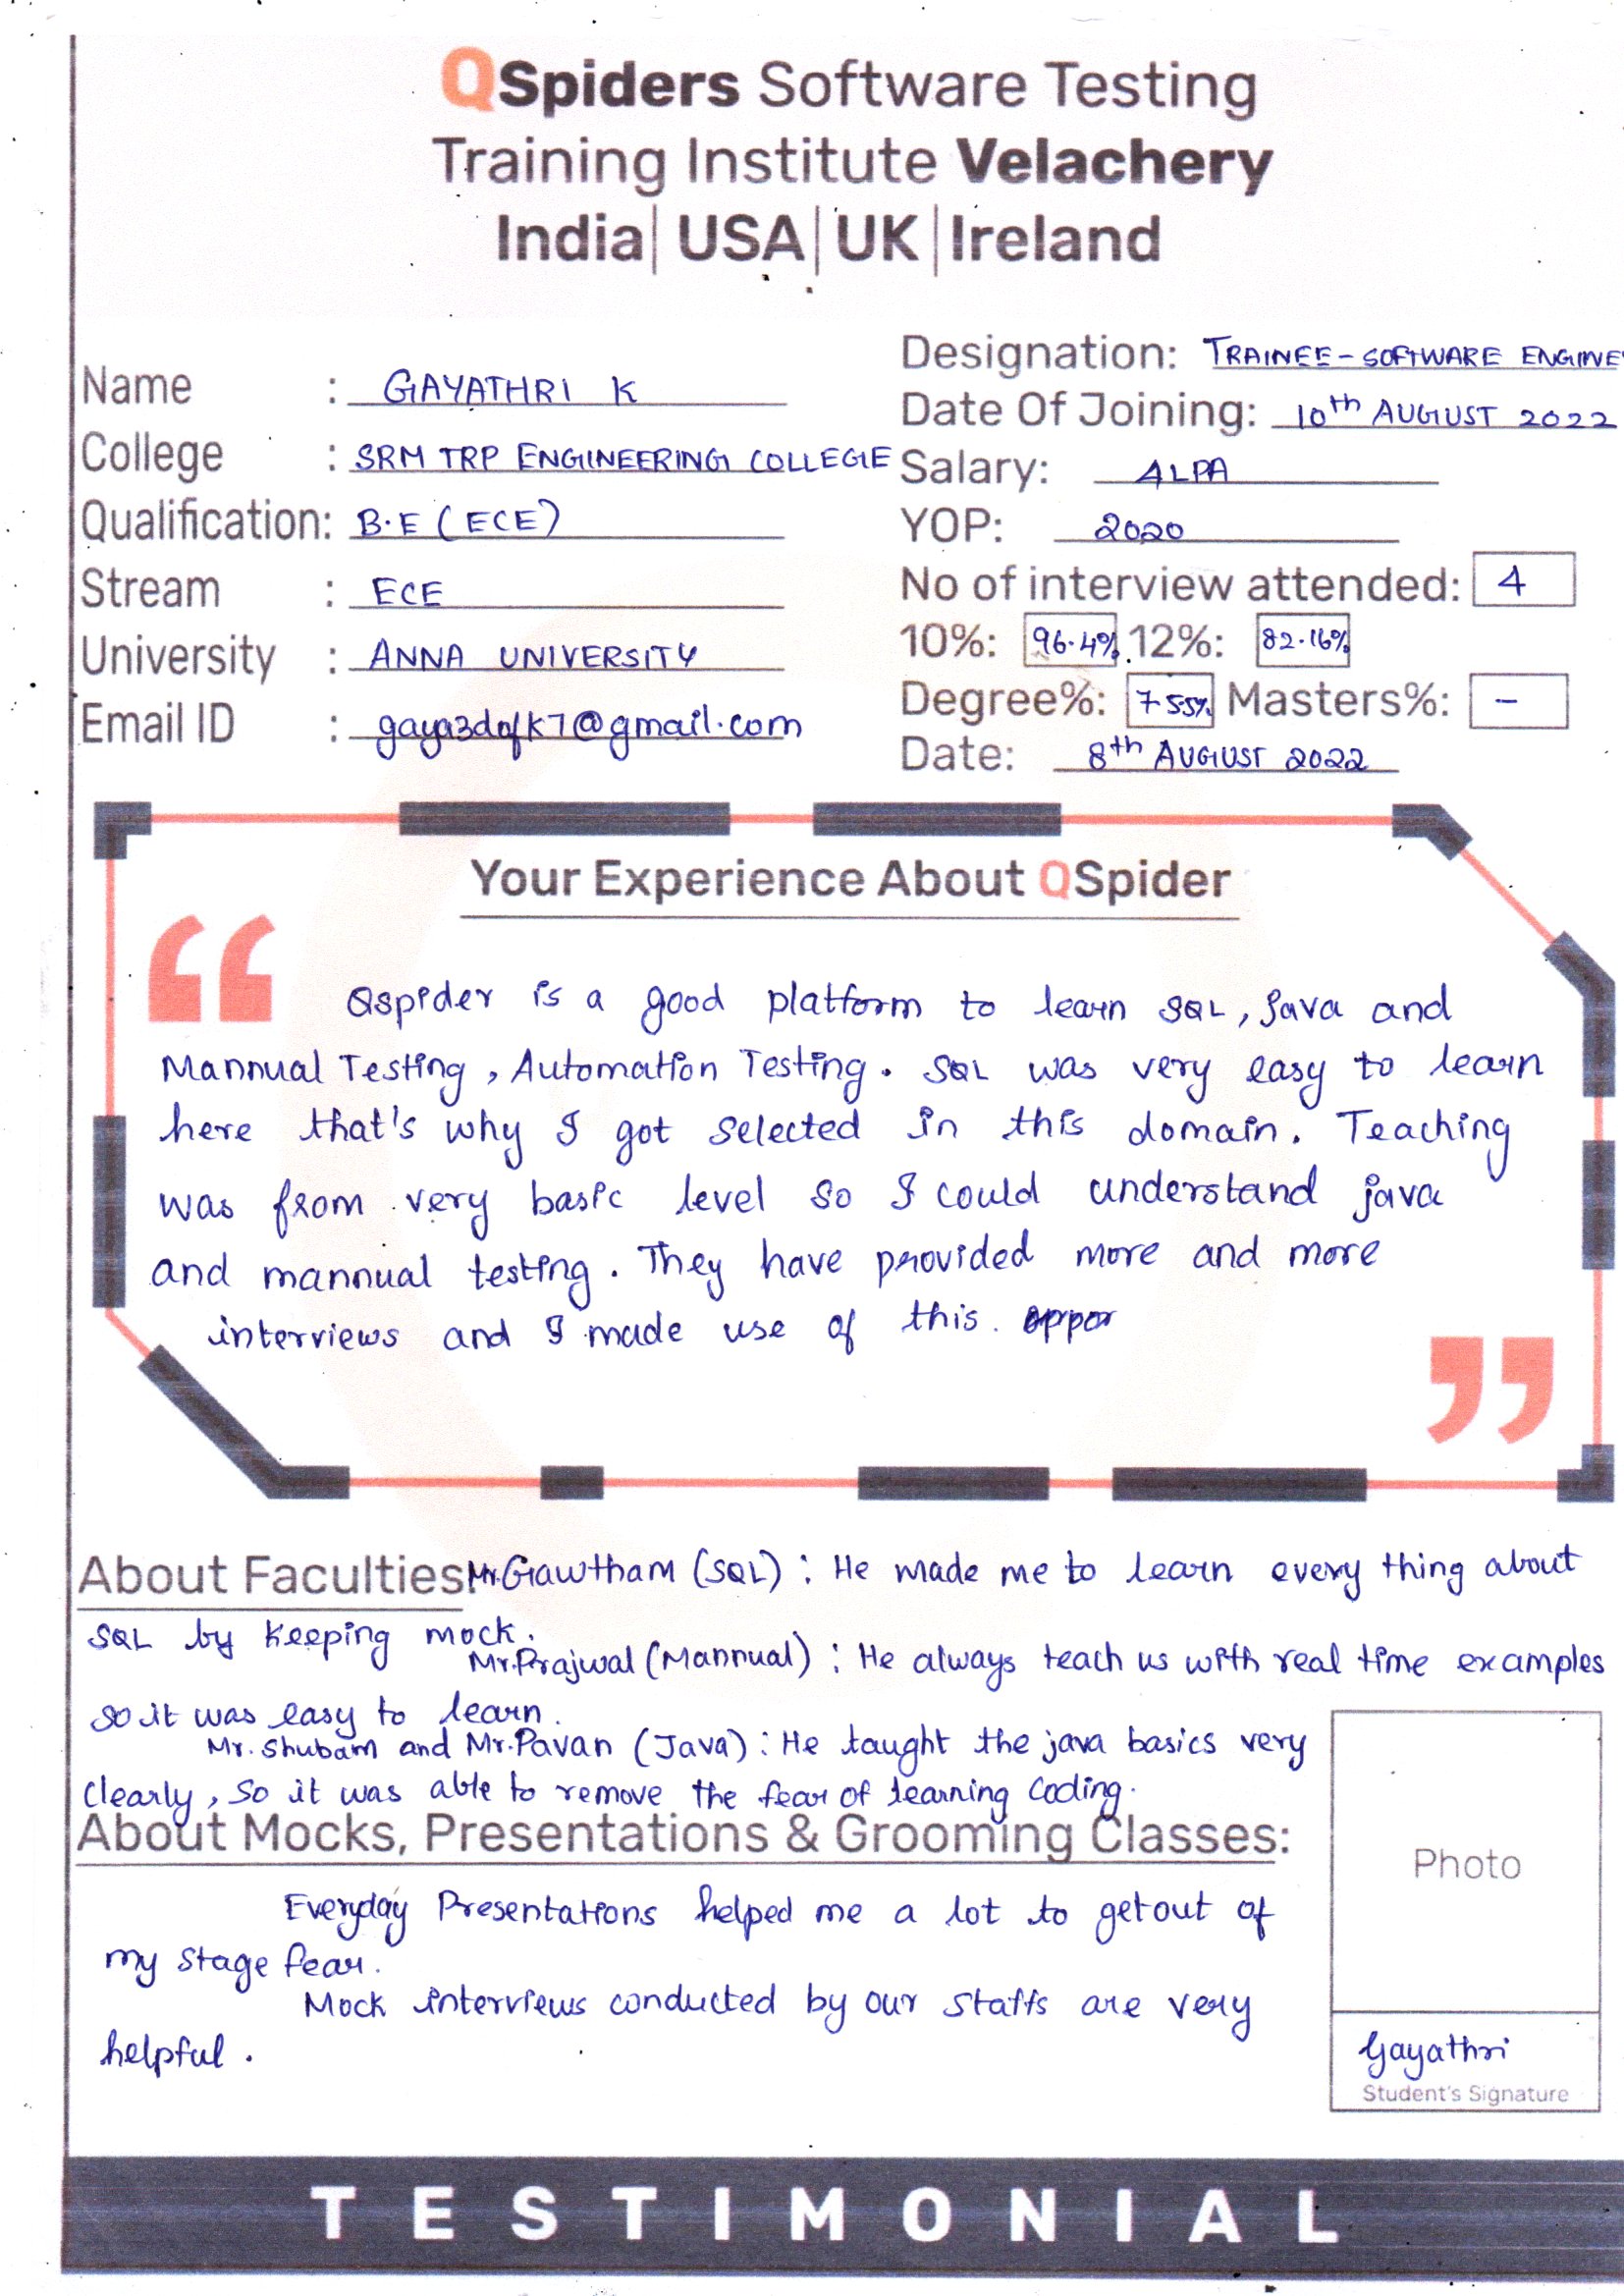 QSpiders Software Testing
Training Institute Velachery
India| USA| UK |Ireland
Name : GAYATHRI K
College : SRM TRP ENGINEERING COLLEGE
Qualification: B.E (ECE)
Stream : ECE
University : ANNA UNIVERSITY
Email ID : @gmail.com
Designation: TRAINEE - SOFTWARE ENGINE
Date Of Joining: 10th AUGUST 2022
Salary: 4LPA
YOP: 2020
No of interview attended: 4
10%: 96.4% 12%: 82.16%
Degree%: Masters%: -
Date: 8th AUGUST 2022
Your Experience About QSpider
“
Qspider is a good platform to learn SQL, Java and
Mannual Testing, Automation Testing. SQL was very easy to learn
here that's why I got selected in this domain. Teaching
was from very basic level so I could understand java
and mannual testing. They have provided more and more
interviews and I made use of this. oppor
”
About Faculties: Mr.Gawtham (SQL) : He made me to learn every thing about
SQL by keeping mock.
Mr.Prajwal (Mannual) : He always teach us with real time examples
so it was easy to learn.
Mr. Shubam and Mr.Pavan (Java) : He taught the java basics very
clearly, so it was able to remove the fear of learning coding.
About Mocks, Presentations & Grooming Classes:
Everyday Presentations helped me a lot to getout of
my stage fear.
Mock interviews conducted by our staffs are very
helpful.
Photo
Gayathri
Student's Signature
TESTIMONIAL